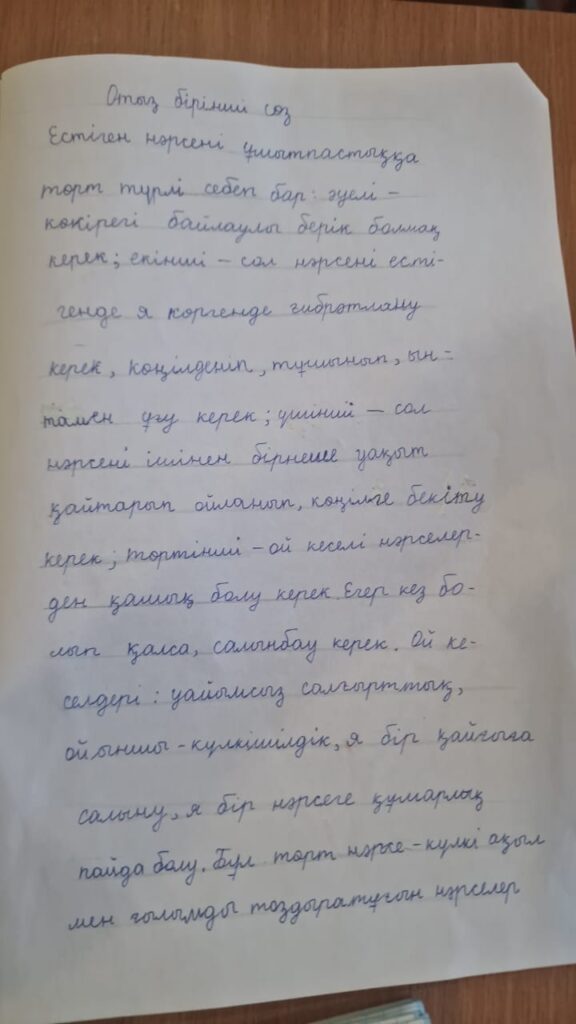 Отыз бірінші сөз
Естіген нәрсені ұмытпастыққа
төрт түрлі себеп бар: әуелі –
көкірегі байлаулы берік болмақ
керек; екінші – сол нәрсені есті-
генде я көргенде ғибрәтлану
керек, көңілденіп, тұшынып, ын-
тамен ұғу керек; үшінші – сол
нәрсені ішінен бірнеше уақыт
қайтарып ойланып, көңілге бекіту
керек; төртінші – ой кеселі нәрселер-
ден қашық болу керек. Егер кез бо-
лып қалса, салынбау керек. Ой ке-
селдері: уайымсыз салғырттық,
ойыншы-күлкішілдік, я бір қайғыға
салыну, я бір нәрсеге құмарлық
пайда болу. Бұл төрт нәрсе – күлкі ақыл
мен ғылымды тоздыратұғын нәрселер